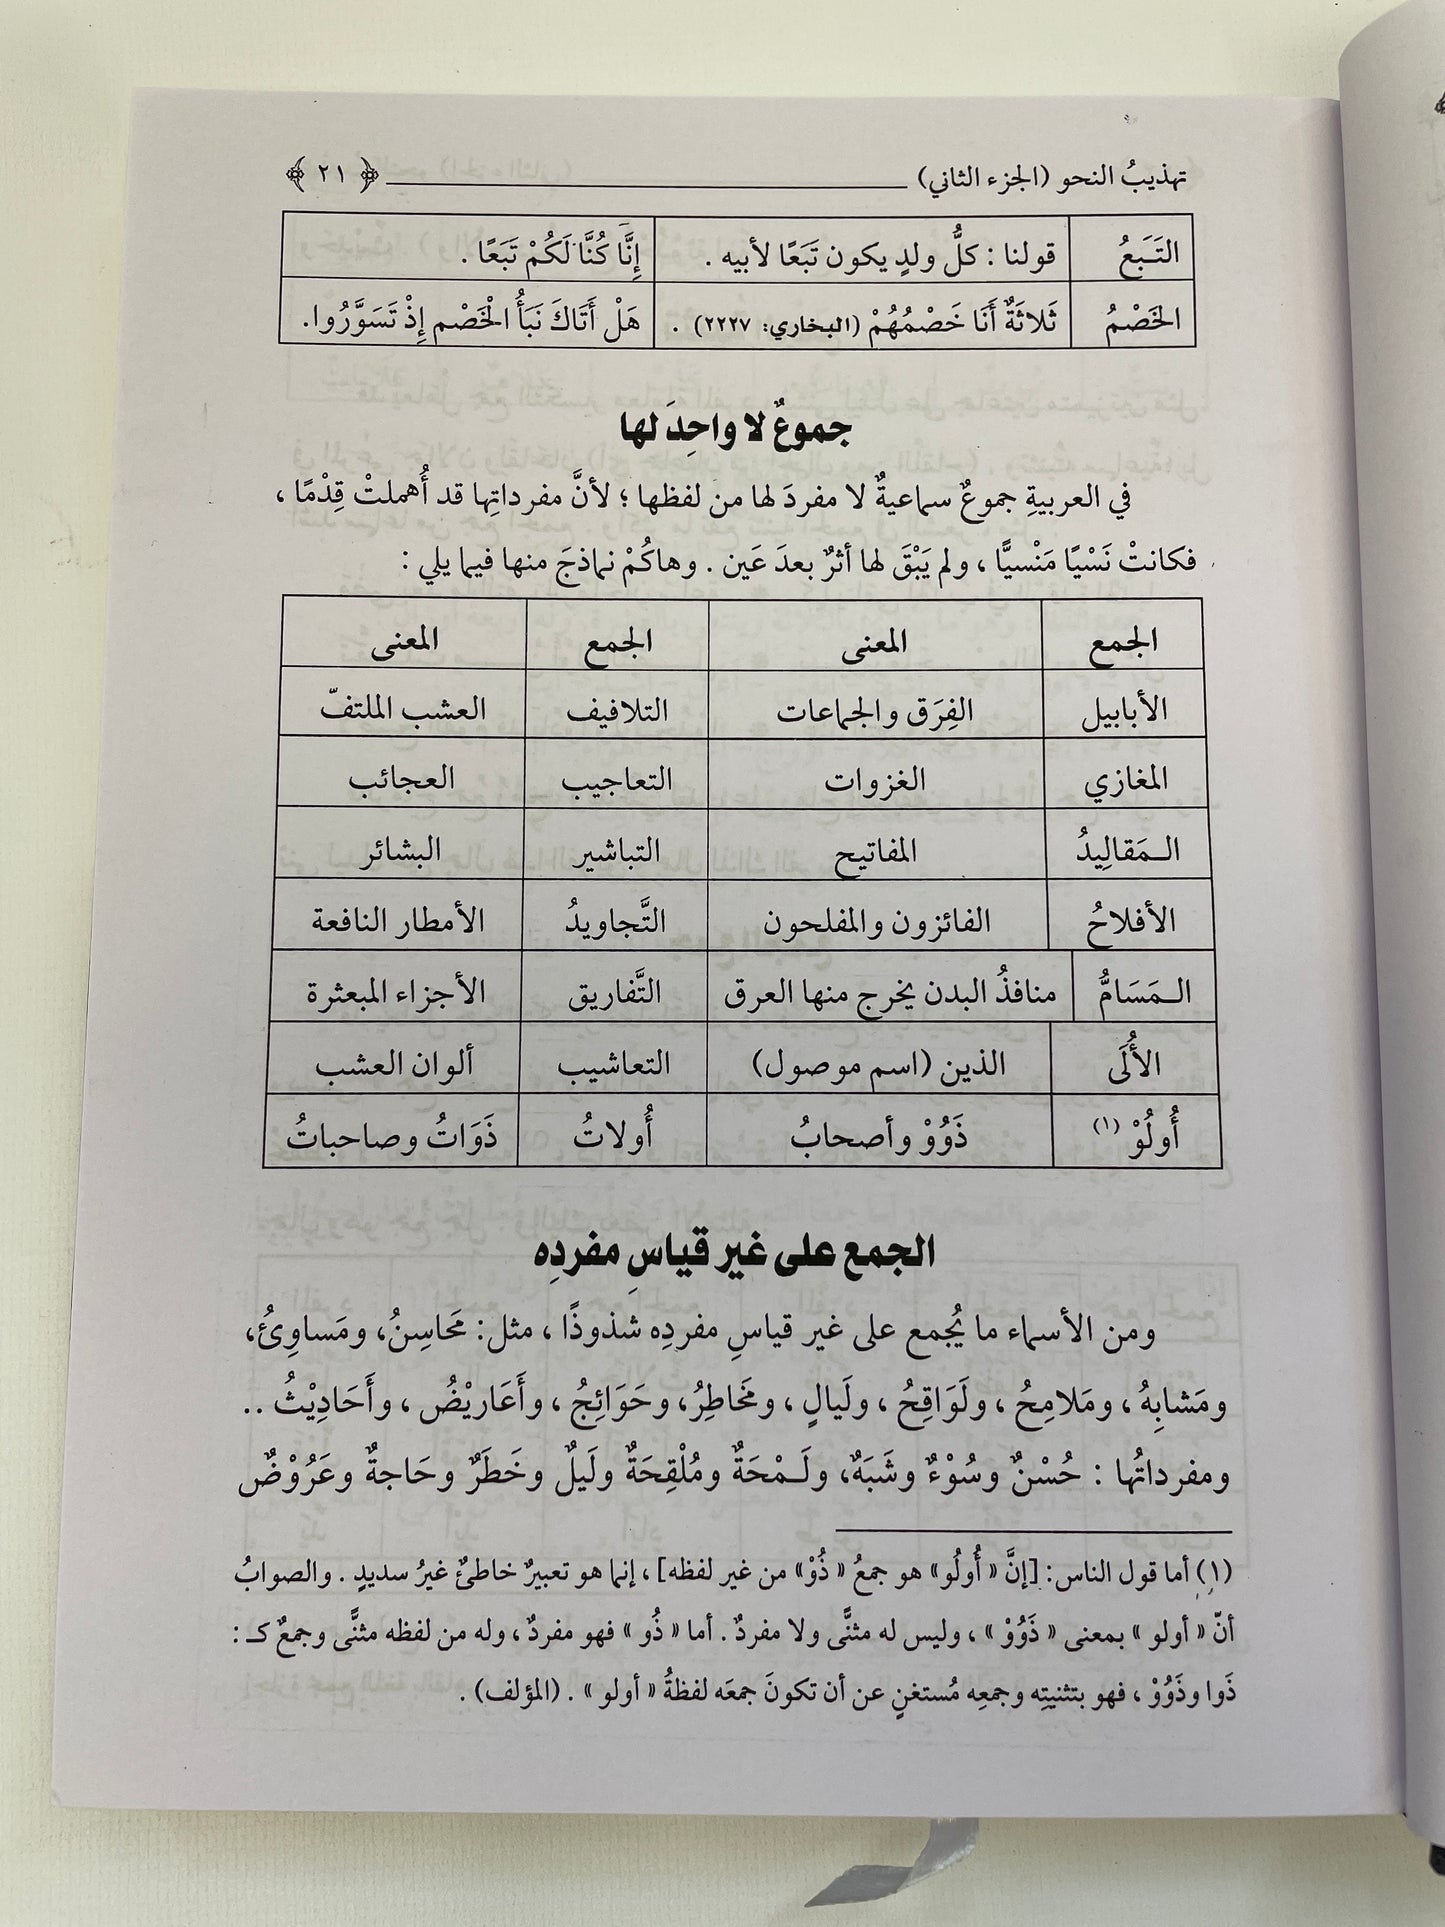 تهذيبُ النحو (الجزء الثاني) ﴿ ٢١ ﴾
التَـبَعُ قولنا : كلُّ ولدٍ يكون تَبَعًا لأبيه . إِنَّا كُنَّا لَكُمْ تَبَعًا .
الخَصْمُ ثَلاثَةٌ أَنَا خَصْمُهُمْ (البخاري: ٢٢٢٧) . هَلْ أَتَاكَ نَبَأُ الْخَصْم إِذْ تَسَوَّرُوا.
جموعٌ لا واحِدَ لها
في العربيةِ جموعٌ سماعيةٌ لا مفردَ لها من لفظها ؛ لأنَّ مفرداتِها قد أُهملتْ قِدْمًا ،
فكانتْ نَسْيًا مَنْسيًّا ، ولم يَبْقَ لها أثرٌ بعدَ عَين . وهاكُمْ نماذجَ منها فيما يلي :
الجمع المعنى الجمع المعنى
الأبابيل الفِرَق والجماعات التلافيف العشب الملتفّ
المغازي الغزوات التعاجيب العجائب
الـمَقالِيدُ المفاتيح التباشير البشائر
الأفلاحُ الفائزون والمفلحون التَّجاويدُ الأمطار النافعة
الـمَسَامُّ منافذُ البدن يخرج منها العرق التَّفاريق الأجزاء المبعثرة
الأُلَى الذين (اسم موصول) التعاشيب ألوان العشب
أُولُوْ (١) ذَوُوْ وأصحابُ أُولاتُ ذَوَاتُ وصاحباتُ
الجمع على غير قياسِ مفردِه
ومن الأسماء ما يُجمع على غير قياسِ مفردِه شذوذًا ، مثل: مَحاسِنُ، ومَساوِئُ،
ومَشابِهُ ، ومَلامِحُ ، ولَوَاقِحُ ، ولَيالٍ ، ومَخاطِرُ، وحَوَائِجُ ، وأَعَاريْضُ ، وأَحَادِيْثُ ..
ومفرداتُها : حُسْنٌ وسُوْءٌ وشَبَهٌ، ولَـمْحَةٌ ومُلْقِحَةٌ ولَيلٌ وخَطَرٌ وحَاجةٌ وعَرُوْضٌ
(١) أما قول الناس: [إنَّ « أُولُو» هو جمعُ « ذُوْ» من غير لفظه] ، إنما هو تعبيرٌ خاطئٌ غيرُ سديدٍ . والصوابُ
أنّ « أولو » بمعنى « ذَوُوْ » ، وليس له مثنًّى ولا مفردٌ . أما « ذُو » فهو مفردٌ ، وله من لفظه مثنًّى وجمعٌ كـ :
ذَوا وذَوُوْ ، فهو بتثنيتِه وجمعِه مُستغنٍ عن أن تكونَ جمعَه لفظةُ « أولو » . (المؤلف) .